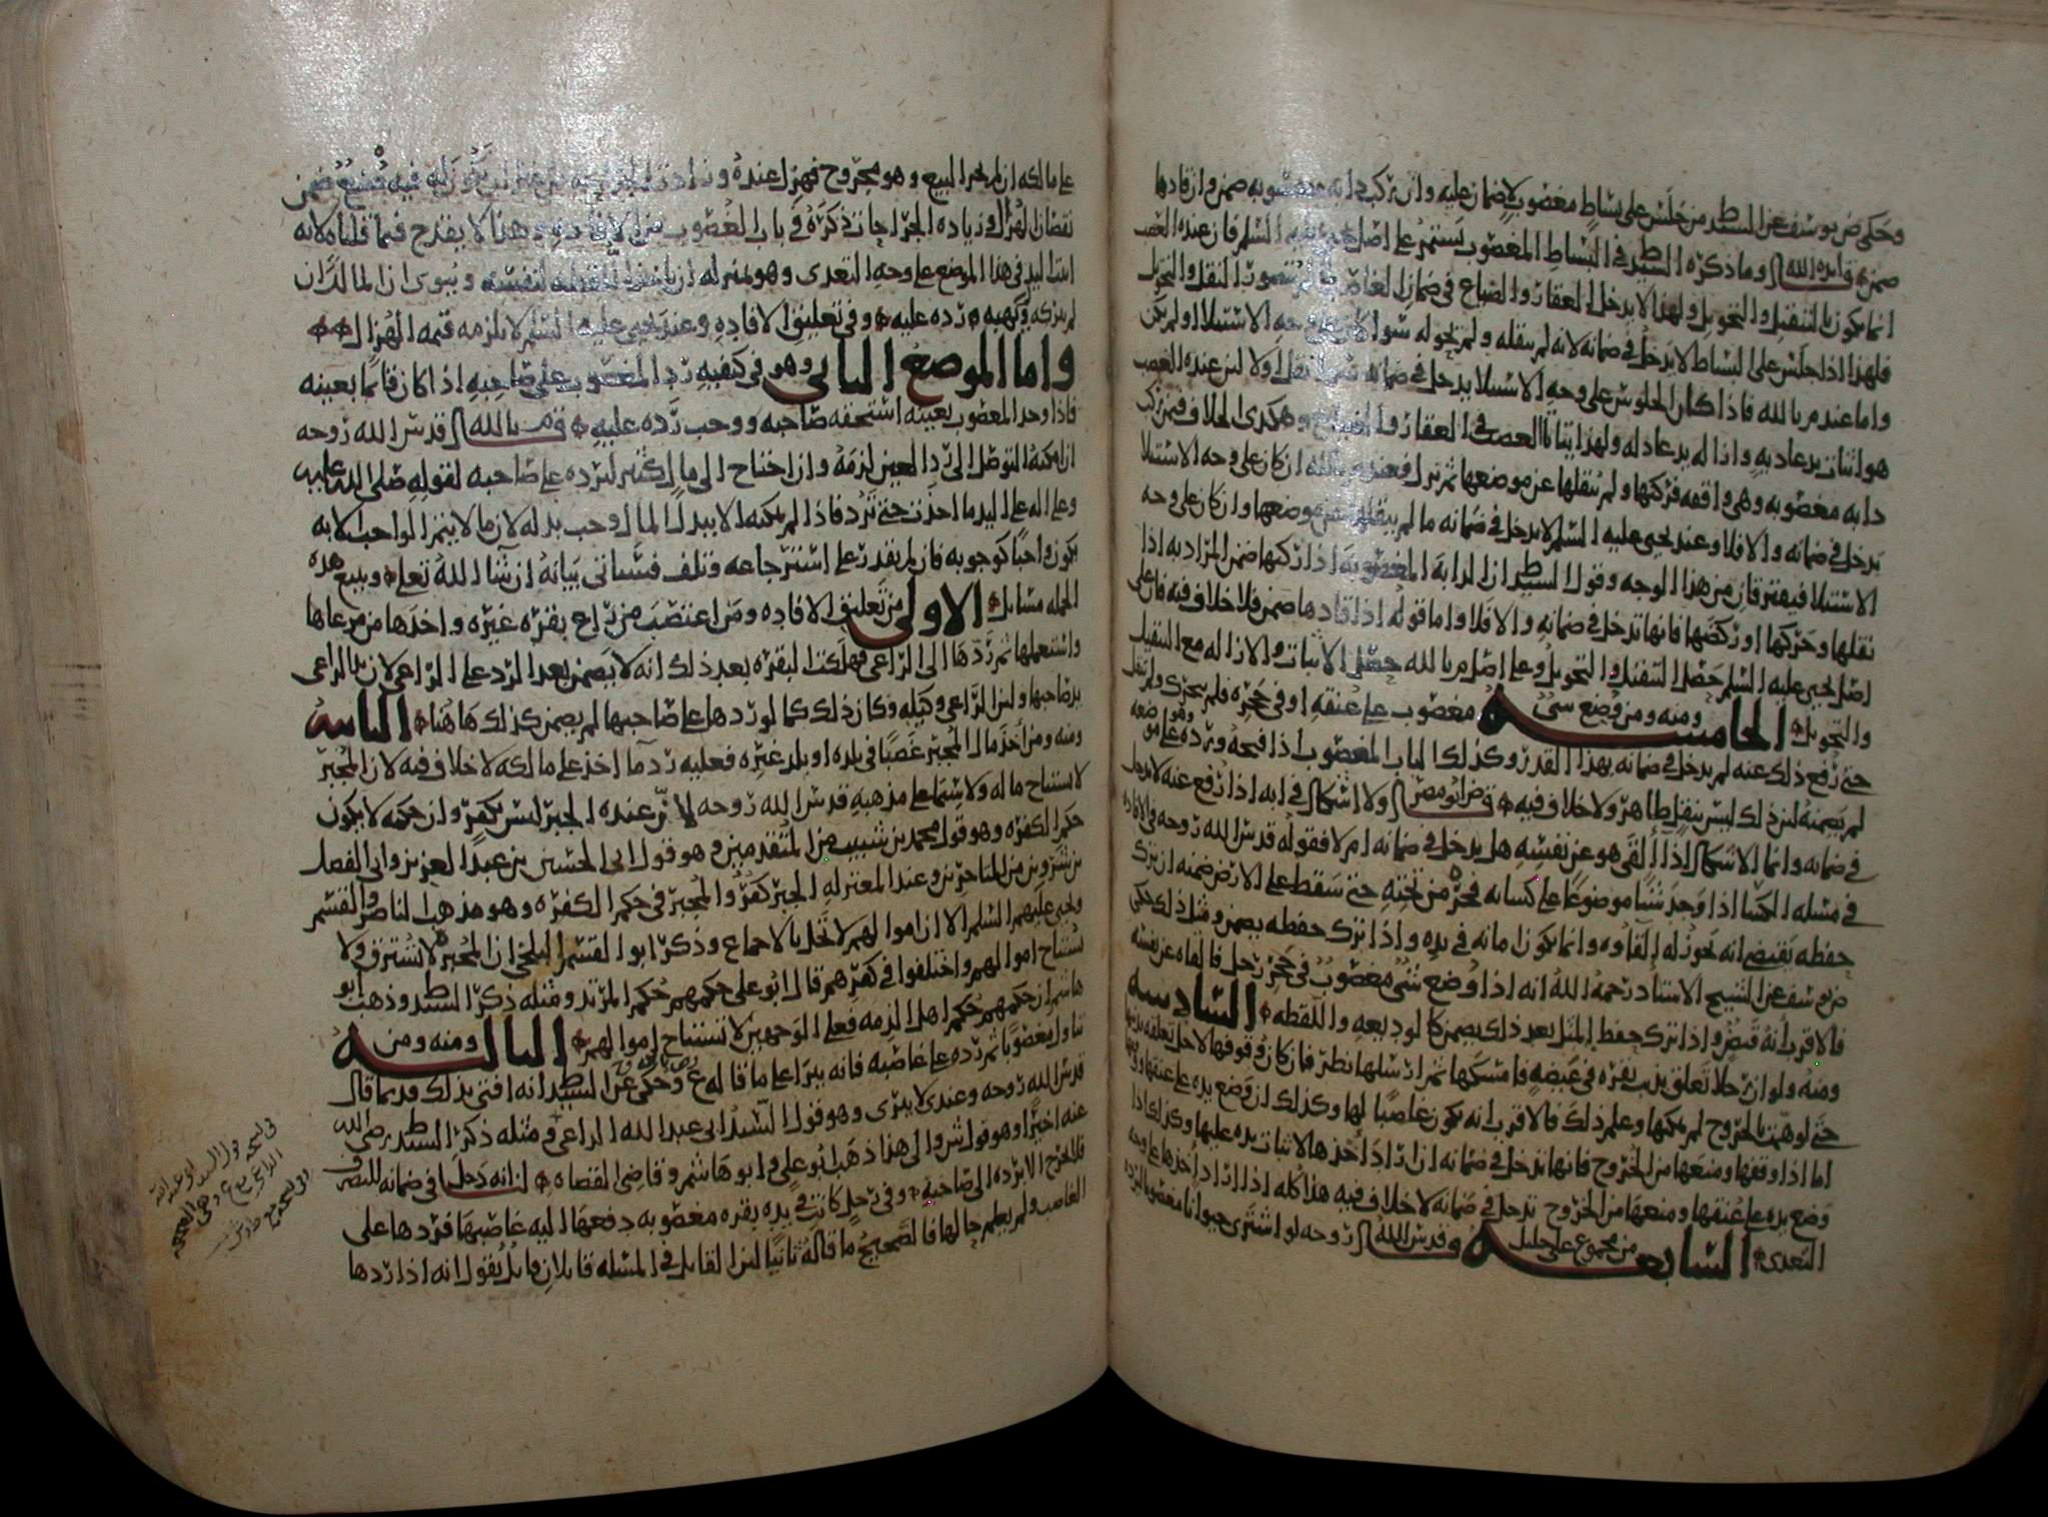 وحكى ض يوسف عن السيد ط من جلس على بساط مغصوب لا ضمان عليه وان ركب دابه مغصوبه ضمن وان قادها
ضمن قال ايده الله وما ذكره السيد ط في البساط المغصوب يستمر على اصل يحيى عليه السلم فان عنده الغصب
انما يكون بالتنقيل والتحويل ولهذا لا يدخل العقار والضياع في ضمان الغاصب لما لم يتصور النقل والتحويل
فلهذا اذا جلس على البساط لا يدخل في ضمانه لانه لم ينقله ولم يحوله سوا كان على وجه الاستيلا او لم يكن
واما عند م بالله فاذا كان الجلوس على وجه الاستيلا يدخل في ضمانه نقل او لا لان عنده الغصب
هو اثبات يد عاديه وازاله يد عادله ولهذا يتاتا الغصب في العقار والضياع وهكذى الخلاف فيمن ركب
دابه مغصوبه وهي واقفه فركبها ولم ينقلها عن موضعها ثم نزل فعند م بالله ان كان على وجه الاستيلا
يدخل في ضمانه والا فلا وعند يحيى عليه السلم لا يدخل في ضمانه ما لم ينقلها عن موضعها وان كان على وجه
الاستيلا فيفترقان من هذا الوجه وقول السيد ط ان الدابه المغصوبه اذا ركبها ضمن المراد به اذا
نقلها وحركها او ركضها فانها تدخل في ضمانه والا فلا واما قوله اذا قادها ضمن فلا خلاف فيه فان على
اصل يحيى عليه السلم حصل التنقيل والتحويل وعلى اصل م بالله حصل الاثبات والازاله مع التنقيل
والتحويل الخامسه ومنه ومن وضع شي مغصوب على عنقه او في حجره فلم يحرك ولم ينقل
حتى رفع ذلك عنه لم يدخل في ضمانه بهذا القدر وكذلك الباب المغصوب اذا فتحه ورده وهو على موضعه
لم يضمنه لان ذلك ليس بنقل ظاهر ولا خلاف فيه قال ض ابو مضر ولا اشكال في انه اذا رفع عنه لا يدخل
في ضمانه وانما الاشكال اذا القى هو عن نفسه هل يدخل في ضمانه ام لا فقوله قدس الله روحه في الافاده
في مسله الكسا اذا وجد شيا موضوعا على كسائه فجره من تحته حتى سقط على الارض ضمنه ان ترك
حفظه يقتضي انه يجوز له القاوه وانما يكون امانه في يده واذا ترك حفظه يضمن ومثل ذلك حكى
ض يوسف عن الشيخ الاستاد رحمه الله انه اذا وضع شي مغصوب في حجر رجل فالقاه عن نفسه
فالاقرب انه قبض واذا ترك حفظ المثل بعد ذلك يضمن كالوديعه واللقطه السادسه
ومنه ولو ان رجلا تعلق بذنب بقره في غيضه فامسكها ثم ارسلها نظر فان كان وقوفها لاجل تعلقه بذنبها
حتى لو همت بالخروج لم يمكنها وعلم ذلك فالاقرب انه يكون غاصبا لها وكذلك ان وضع يده على عنقها
اما اذا وقفها ومنعها من الخروج فانها تدخل في ضمانه ان اراد اخذها لاثبات يده عليها وكذلك اذا
وضع يده على عنقها ومنعها من الخروج تدخل في ضمانه لا خلاف فيه هذا كله اذا اراد اخذها على وجه
التعدى السابعه من مجموع على خليل وقدس الله روحه لو اشترى حيوانا مغصوبا
على مالكه ان لم يجز البيع وهو مجروح فهزل عنده وزادت
نقصان الهزال وزياده الجراحات ذكره في باب الغصوب من الافاده وهذا لا يقدح فيما قلناه لانه
ابتدا اليد في هذا الموضع على وجه التعدى وهو بمنزله ان ياخذ اللقطه لنفسه ويبوى ان المالك ان
لم يتركه وكهبه رده عليه وفي تعليق الافاده وعند يحيى عليه السلم لا يلزمه قيمه الهزال
واما الموضع الثاني وهو في كيفيه رد المغصوب على صاحبه اذا كان قائما بعينه
فاذا وجد المغصوب بعينه استحقه صاحبه ووجب رده عليه قال م بالله قدس الله روحه
ان امكنه التوصل الى رد العين لزمه وان احتاج الى مال كثير ليرده على صاحبه لقوله صلى الله عليه
وعلى اله على اليد ما اخذت حتى ترد فاذا لم يمكنه الا ببدل المال وجب بدله لان ما لا يتم الواجب الا به
يكون واجبا كوجوبه فان لم يقدر على استرجاعه وتلف فسياتى بيانه ان شا الله تعلى ويتبع هذه
الجمله مسائل الاولى من تعليق الافاده ومن اغتصب من راع بقره غيره واخذها من مرعاها
واستعملها ثم ردها الى الراعي فهلكت البقره بعد ذلك انه لا يضمن بعد الرد على الراعي لان يد الراعي
يد صاحبها ولان الراعي وكيله وكان ذلك كما لو ردها على صاحبها لم يضمن كذلك هاهنا الثانيه
ومنه ومن اخذ مال المجبر غصبا في بلده او بلد غيره فعليه رد ما اخذ على مالكه لا خلاف فيه لان المجبر
لا يستباح ماله ولا سيما على مذهبه قدس الله روحه لان عنده الجبر ليس بكفر وان حكمه لا يكون
حكم الكفره وهو قول محمد بن شبيب من المتقدمين وهو قول ابي الحسين بن عبد العزيز وابى الفضل
بن شروين من المتاخرين وعند المعتزله الجبر كفر والمجبر في حكم الكفره وهو مذهب الناصر والقسم
ويحيى عليهم السلم الا ان اموالهم لا تحل بالاجماع وذكر ابو القسم البلخي ان المجبره لا تسترق ولا
تستباح اموالهم واختلفوا في كفرهم قال ابو على حكمهم حكم المرتد ومثله ذكر السيد ط وذهب ابو
هاشم ان حكمهم حكم اهل الذمه فعلى الوجهين لا تستباح اموالهم الثالثه ومنه ومن
تناول مغصوبا ثم رده على غاصبه فانه يبرا على ما قاله ع وحكى عن السيد ط انه افتى بذلك قديما قال
قدس الله روحه وعندى لا يبرى وهو قول السيد ابى عبد الله الداعي ومثله ذكر السيد ط رضي الله
عنه اخيرا وهو قول ش والى هذا ذهب ابو على وابو هاشم وقاضى القضاه لانه دخل في ضمانه للتصرف
فلا يخرج الا برده الى صاحبه وفي رجل كانت في يده بقره مغصوبه دفعها اليه غاصبها فردها على
الغاصب ولم يعلم حالها فالصحيح ما قاله ثانيا لان القايل في المسله قايلان قايل يقول انه اذا ردها